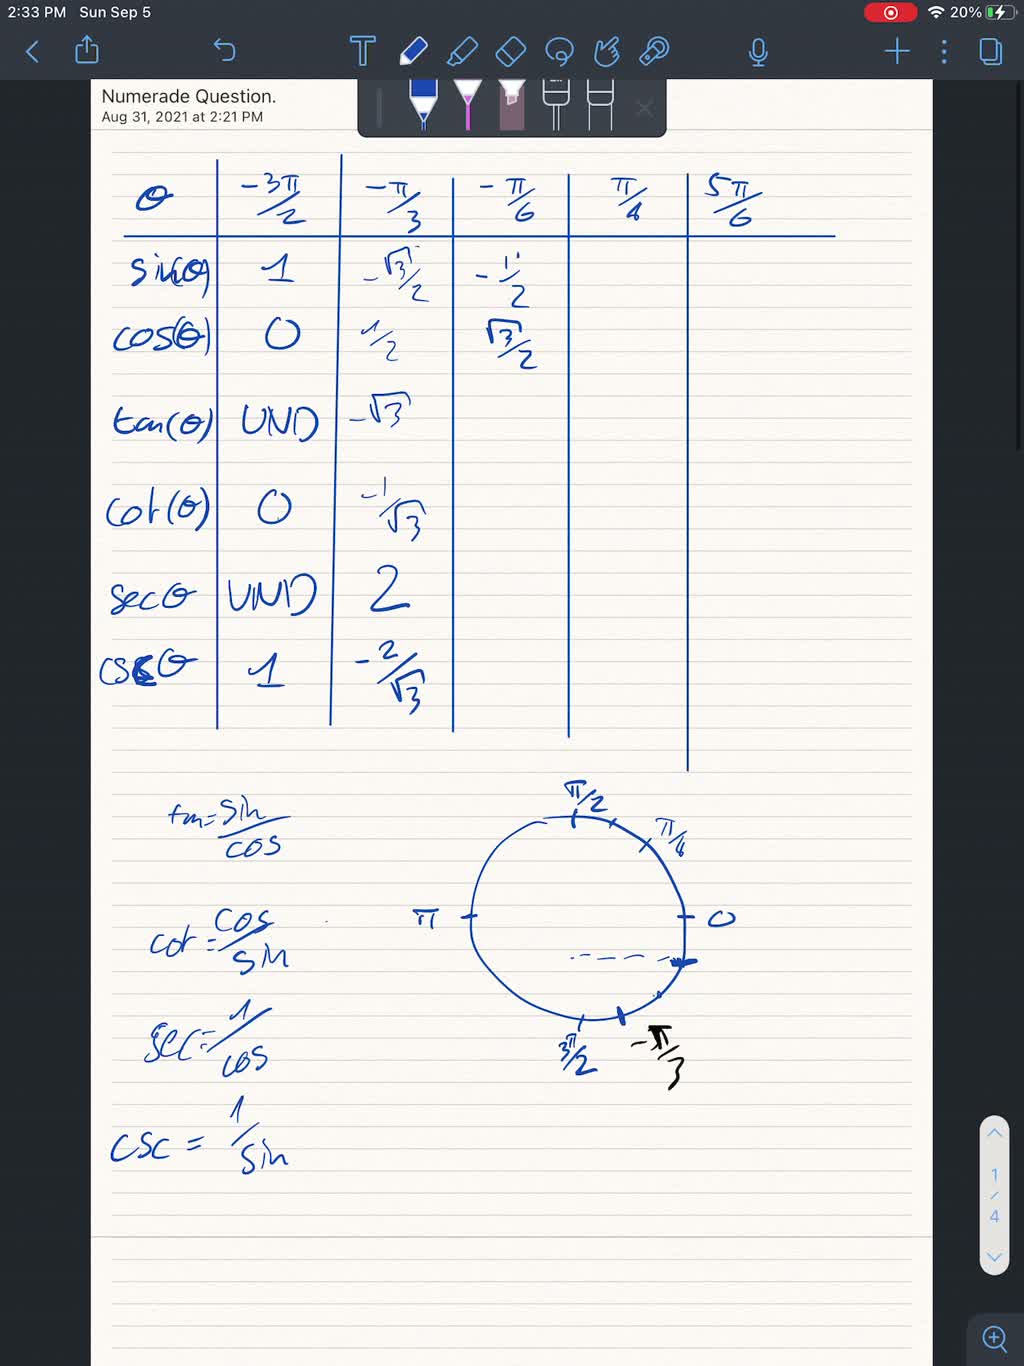 2:33 PM Sun Sep 5 20%
T
Numerade Question.
Aug 31, 2021 at 2:21 PM
θ -3π/2 -π/3 -π/6 π/4 5π/6
sin(θ) 1 -√3/2 -1/2
cos(θ) 0 1/2 √3/2
tan(θ) UND -√3
cot(θ) 0 -1/√3
secθ UND 2
cscθ 1 -2/√3
π/2
tan = sin/cos
π/4
π 0
cot = cos/sin
sec = 1/cos
3π/2 -π/3
csc = 1/sin
1
/
4